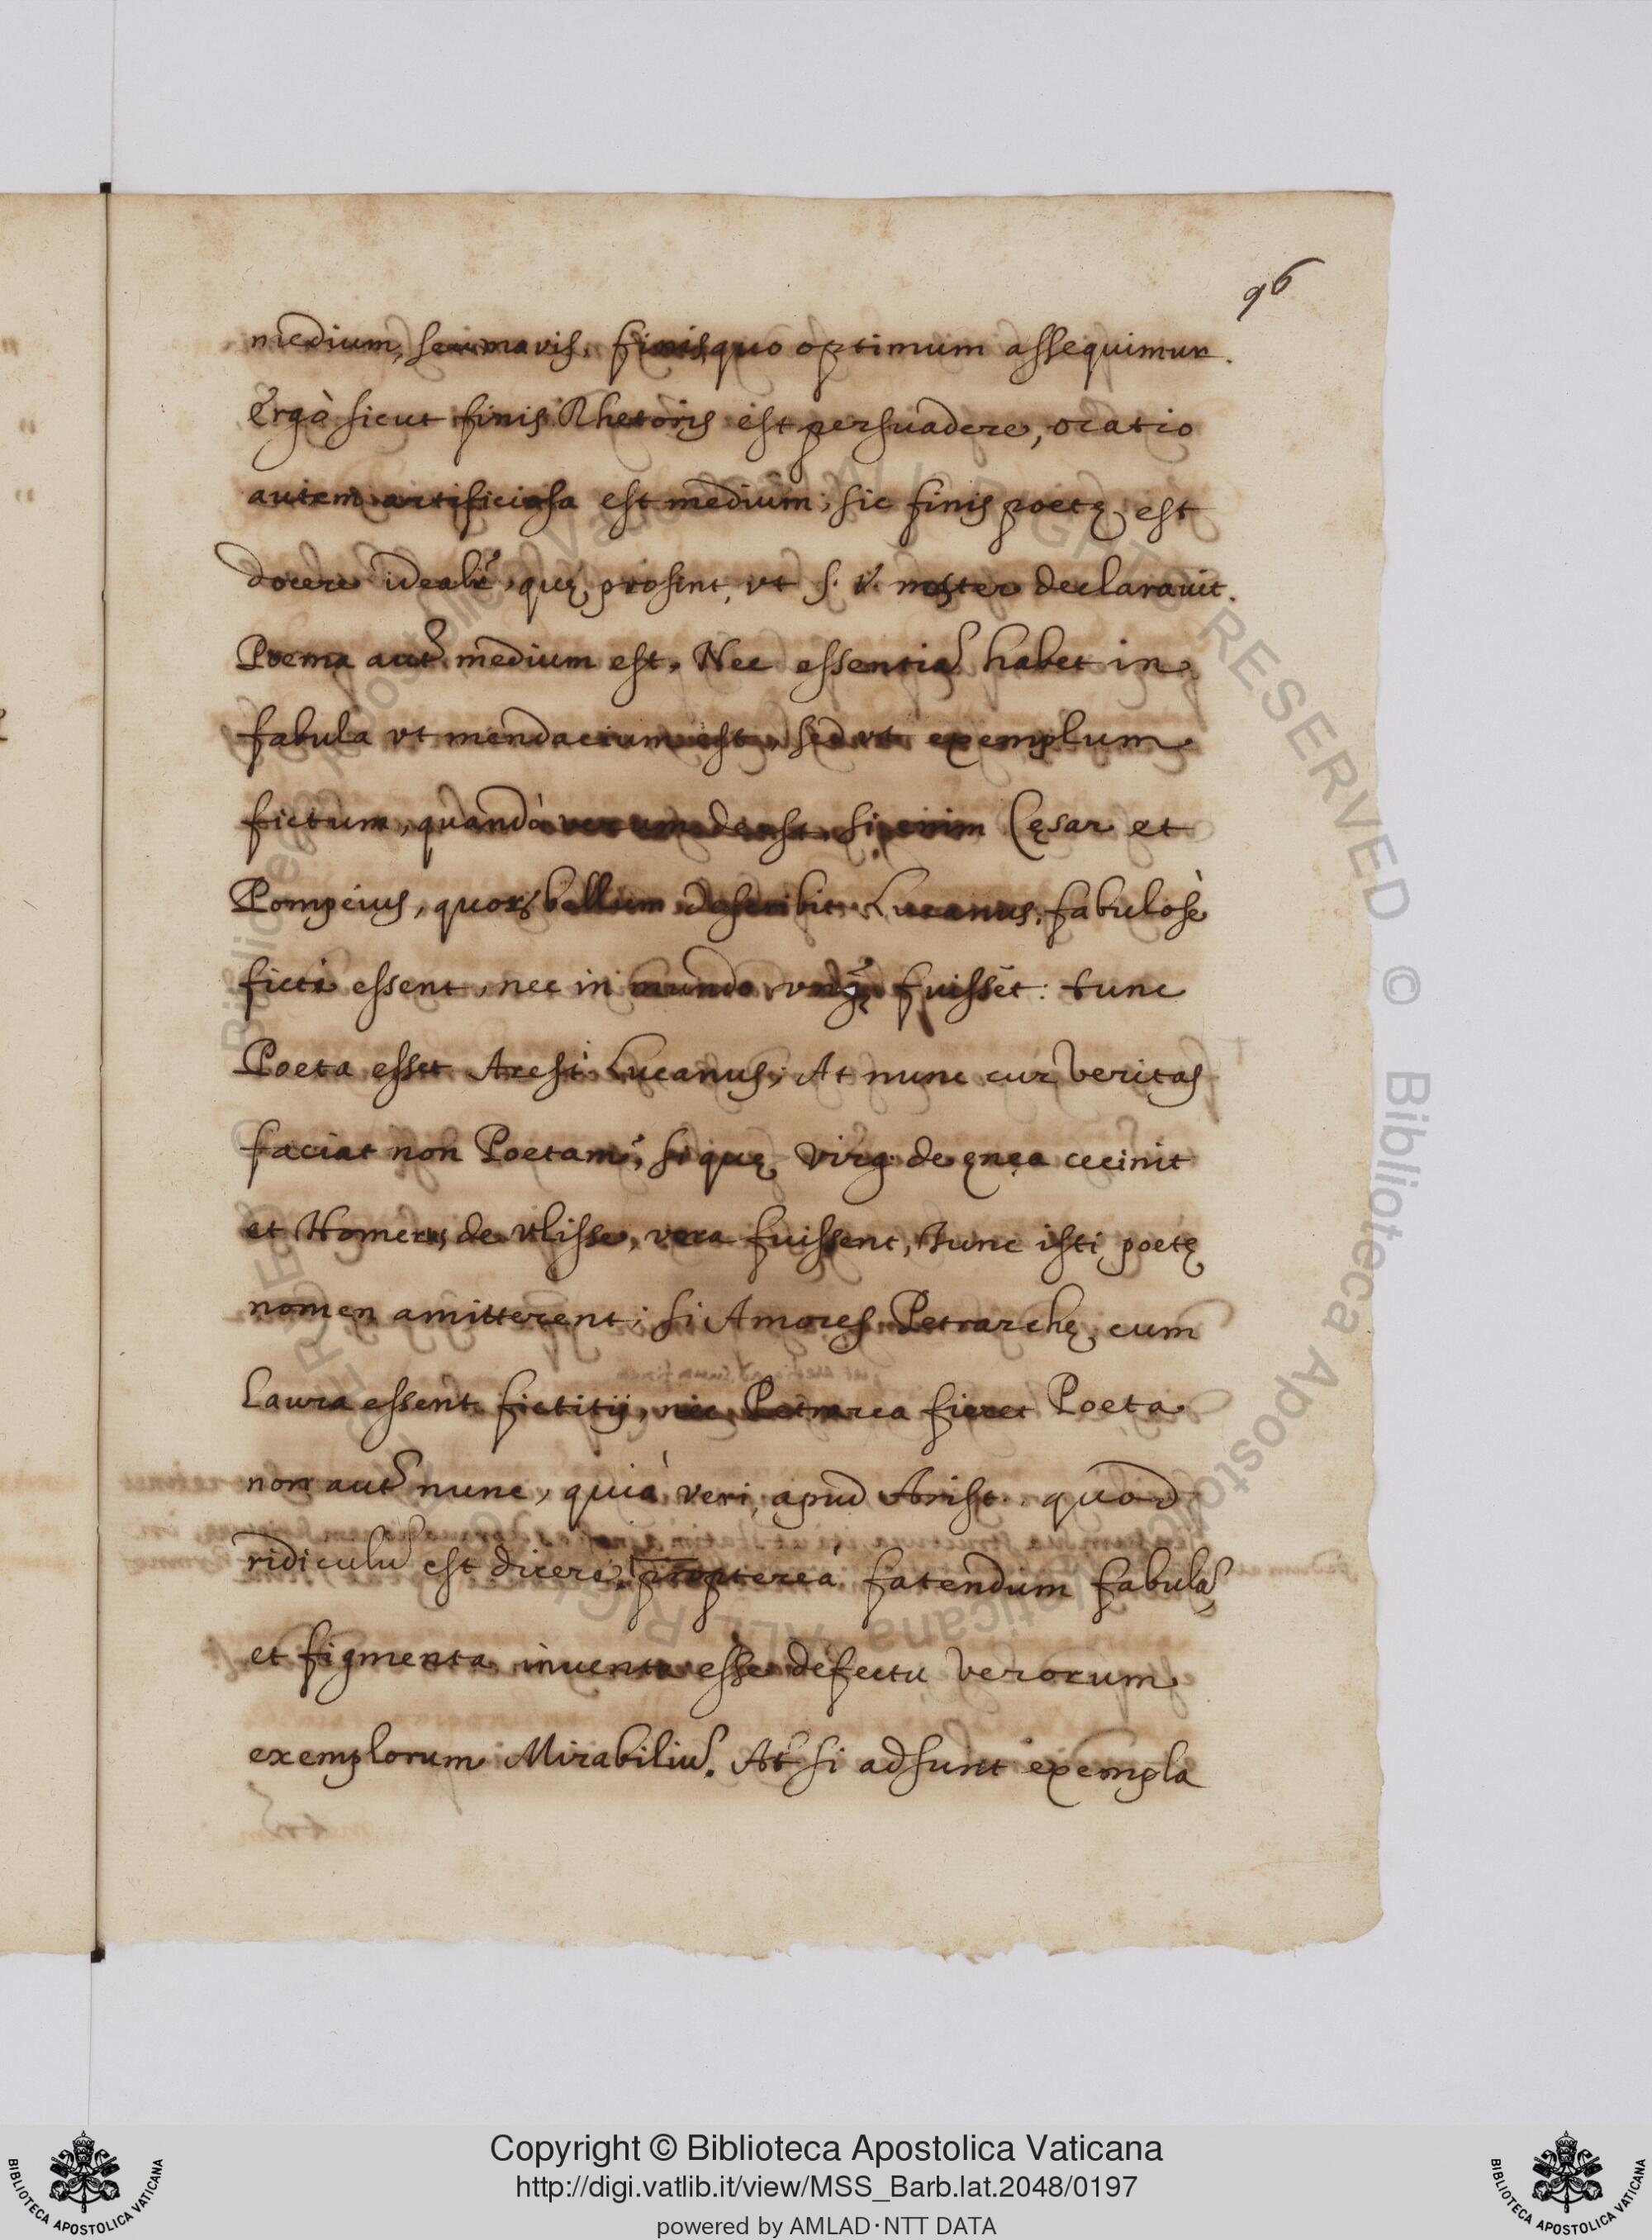 96
medium, seu mavis, finis, quo optimum assequimur.
Ergò sicut finis Rhetoris est persuadere, oratio
autem artificiosa est medium; sic finis poetę est
docere idealr̃, quę prosint, vt S. V. noster declarauit.
Poema aut̃ medium est. Nec essentiã habet in
fabula vt mendacium est, sed vt exemplum
fictum, quandò verum deest. si enim Cęsar et
Pompeius, quorꝝ bellum describit Lucanus, fabulosè
ficti essent, nec in mundo vnq̃ fuissẽt: tunc
Poeta esset Aresti Lucanus; At nunc cur veritas
faciat non Poetam? si quę Virg. de ęnea cecinit
et Homerus de Vlisse, vera fuissent, tunc isti poetę
nomen amitterent; si Amores Petrarchę cum
Laura essent fictitij, nec Petrarca fieret Poeta
non aut̃ nunc, quià veri, apud Arist. quod
ridiculũ est dicere. proptereà fatendum fabulã
et figmenta inuenta esse defectu verorum
exemplorum Mirabiliũ. At si adsunt exempla
Copyright © Biblioteca Apostolica Vaticana
http://digi.vatlib.it/view/MSS_Barb.lat.2048/0197
powered by AMLAD·NTT DATA
BIBLIOTECA APOSTOLICA VATICANA
BIBLIOTECA APOSTOLICA VATICANA